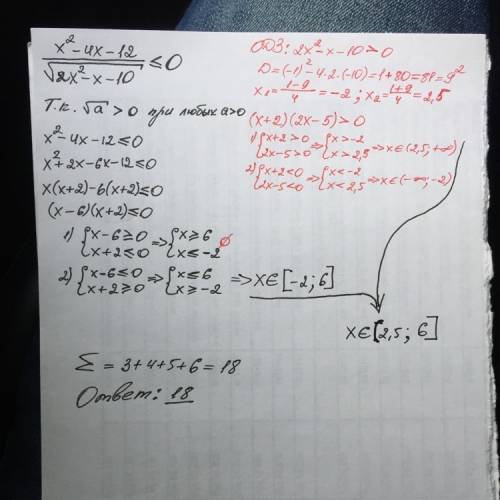 x²-4x-12 / √2x²-x-10 ≤0
Т.к. √a >0 при любых a>0
x²-4x-12≤0
x²+2x-6x-12≤0
x(x+2)-6(x+2)≤0
(x-6)(x+2)≤0
1) {x-6≥0 x+2≤0 => {x≥6 x≤-2 ∅
2) {x-6≤0 x+2≥0 => {x≤6 x≥-2 => x∈[-2;6]
Σ = 3+4+5+6=18
Ответ: 18
ОДЗ: 2x²-x-10>0
D=(-1)²-4·2·(-10)=1+80=81=9²
x₁=1-9/4=-2; x₂=1+9/4=2,5
(x+2)(2x-5)>0
1) {x+2>0 2x-5>0 => {x>-2 x>2,5 => x∈(2,5;+∞)
2) {x+2<0 2x-5<0 => {x<-2 x<2,5 => x∈(-∞;-2)
x∈[2,5; 6]